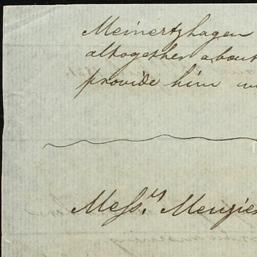 Meinertzhagen
altogether about
provide him
Mess.rs Menzies